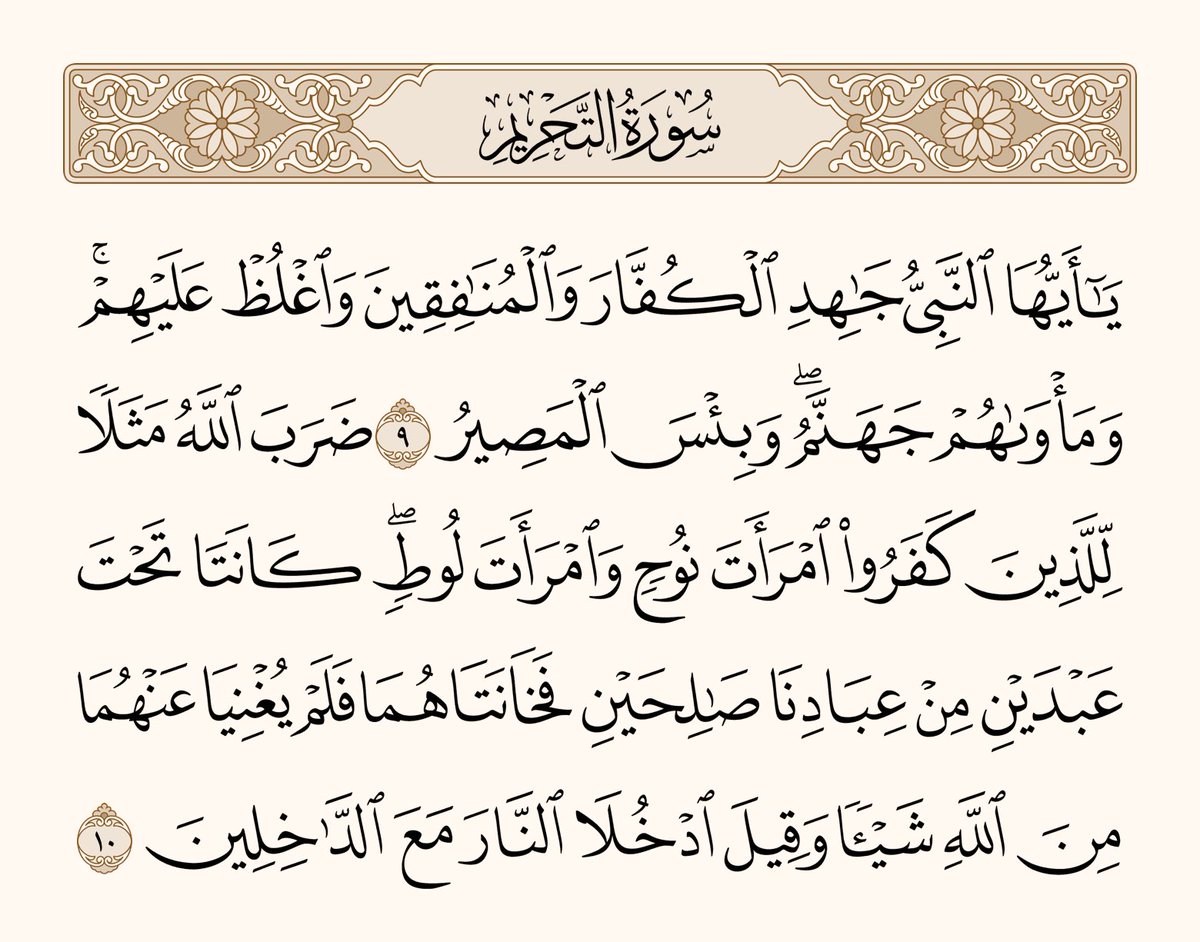 سُورَةُ التَّحْرِيمِ
يَـٰٓأَيُّهَا ٱلنَّبِىُّ جَـٰهِدِ ٱلْكُفَّارَ وَٱلْمُنَـٰفِقِينَ وَٱغْلُظْ عَلَيْهِمْ ۚ
وَمَأْوَىٰهُمْ جَهَنَّمُ ۖ وَبِئْسَ ٱلْمَصِيرُ ٩ ضَرَبَ ٱللَّهُ مَثَلًا
لِّلَّذِينَ كَفَرُوا۟ ٱمْرَأَتَ نُوحٍ وَٱمْرَأَتَ لُوطٍ ۖ كَانَتَا تَحْتَ
عَبْدَيْنِ مِنْ عِبَادِنَا صَـٰلِحَيْنِ فَخَانَتَاهُمَا فَلَمْ يُغْنِيَا عَنْهُمَا
مِنَ ٱللَّهِ شَيْـًٔا وَقِيلَ ٱدْخُلَا ٱلنَّارَ مَعَ ٱلدَّٰخِلِينَ ١٠